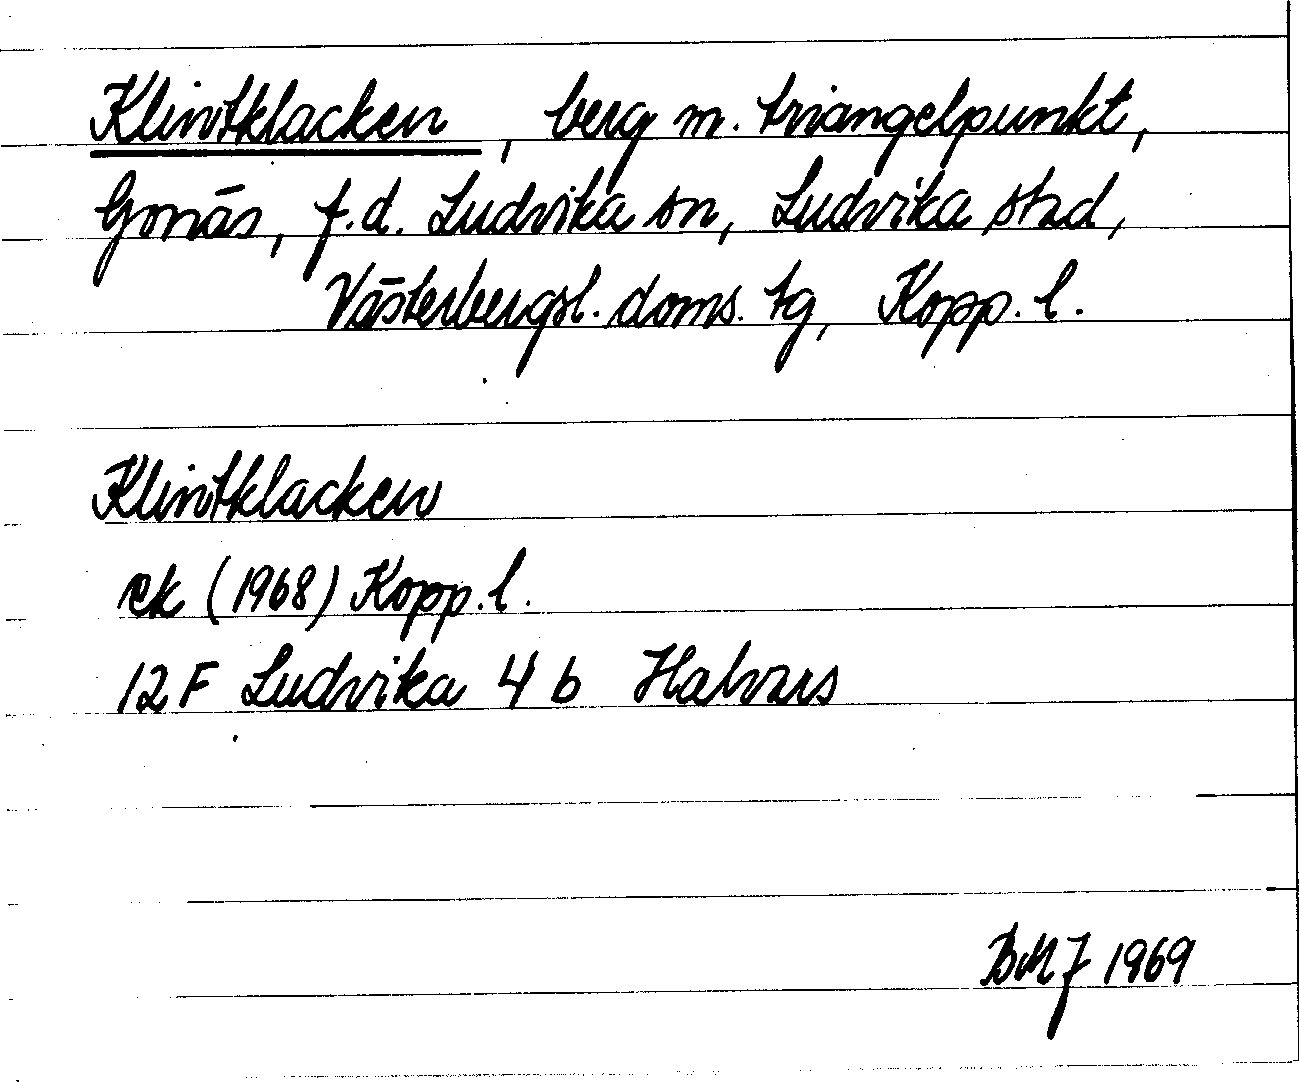 Klintklacken, berg m. triangelpunkt,
Gonäs, f.d. Ludvika sn, Ludvika stad,
Västerbergsl. doms. tg, Kopp. l.
Klintklacken
ek (1968) Kopp. l.
12 F Ludvika 4 b Halvars
BMJ 1969